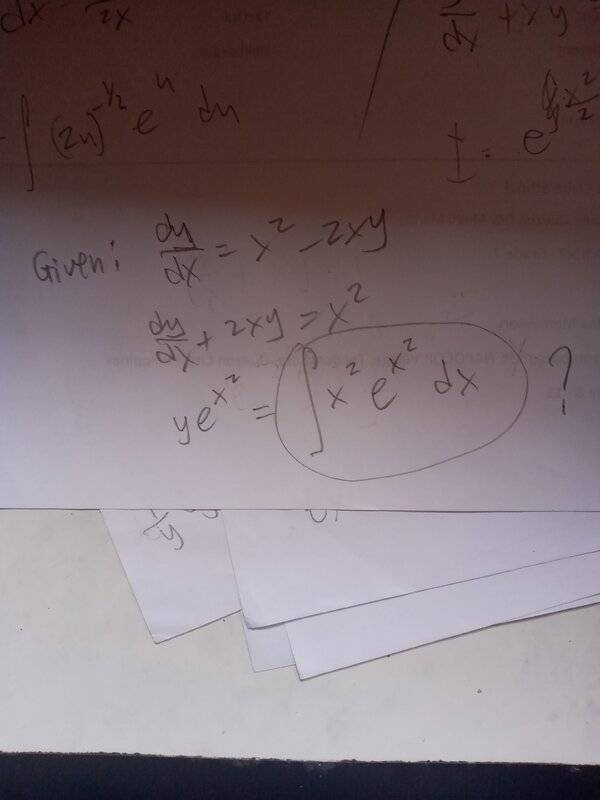 dx 2x
dy/dx + xy
∫ (2u)^-1/2 e^u du
I = e^∫
x^2/2
Given: dy/dx = x^2 - 2xy
dy/dx + 2xy = x^2
ye^x^2 = ∫ x^2 e^x^2 dx ?